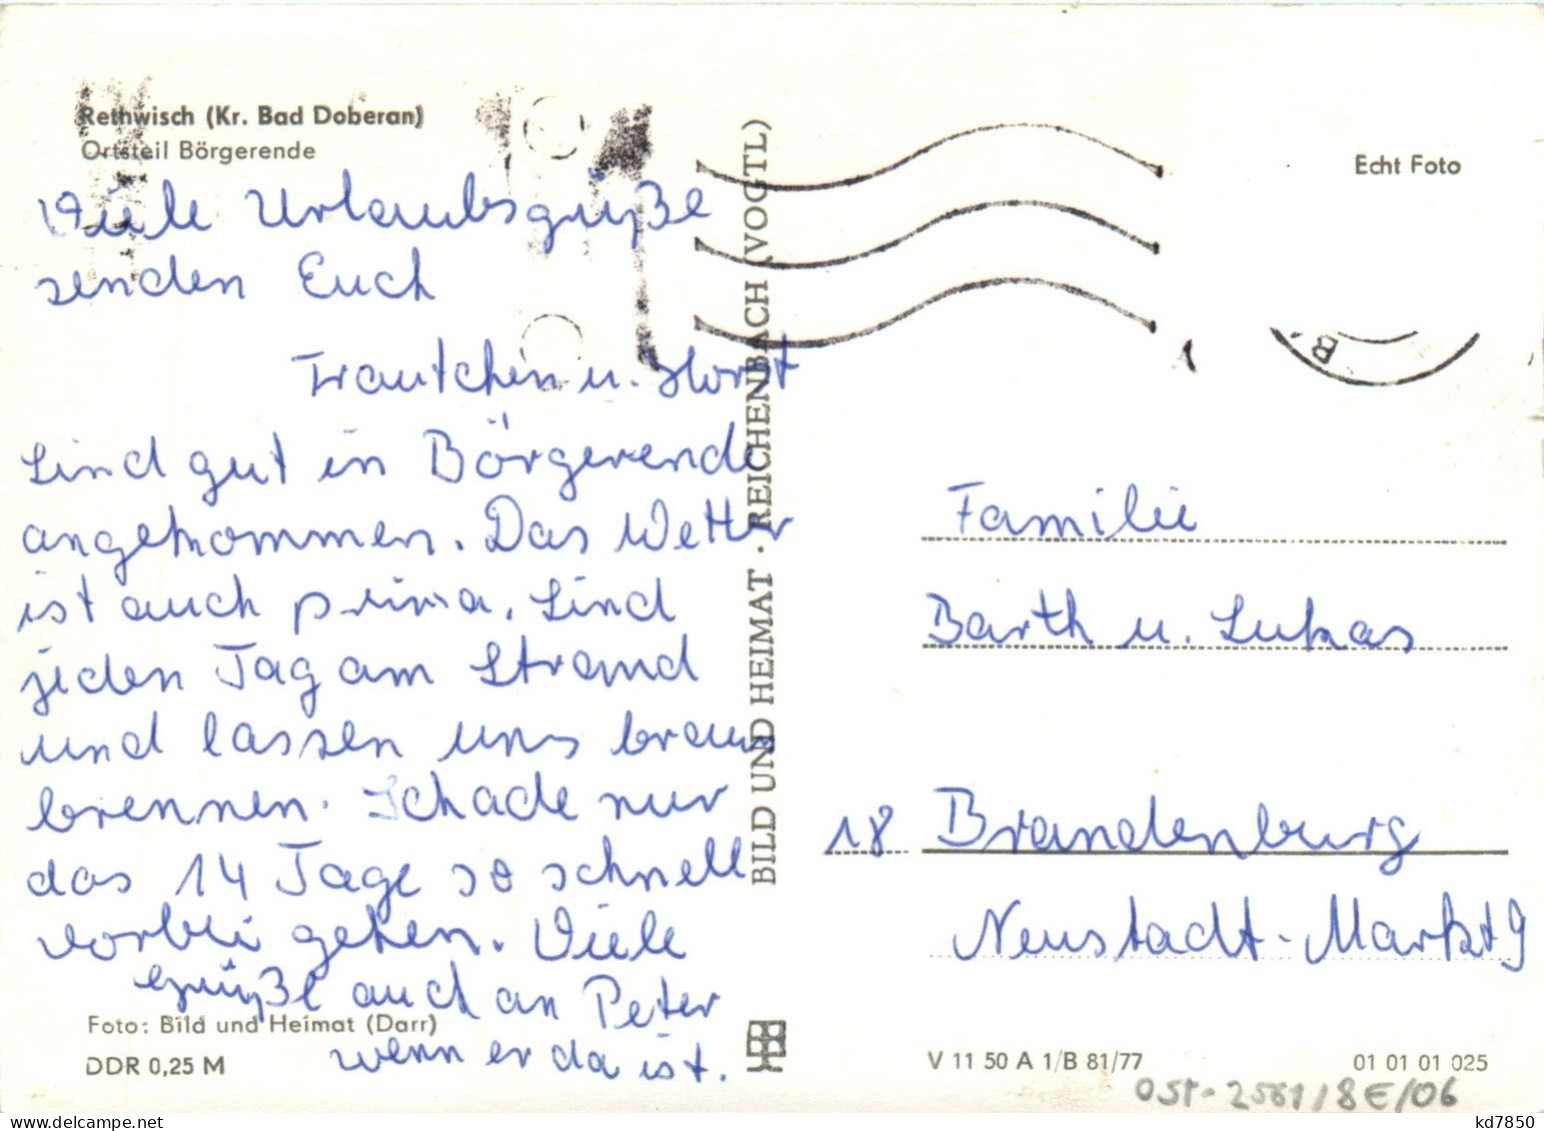 Rethwisch (Kr. Bad Doberan)
Ortsteil Börgerende
Viele Urlaubsgrüße
senden Euch
Trautchen u. Horst
Sind gut in Börgerende
angekommen. Das Wetter
ist auch prima. Sind
jeden Tag am Strand
und lassen uns braun
brennen. Schade nur
das 14 Tage so schnell
vorbei gehen. Viele
Grüße auch an Peter
wenn er da ist.
Foto: Bild und Heimat (Darr)
DDR 0,25 M
BILD UND HEIMAT · REICHENBACH (VOGTL)
Echt Foto
B
Familie
Barth u. Lukas
18 Brandenburg
Neustadt-Markt 9
V 11 50 A 1/B 81/77
01 01 01 025
OST-2561/8E/06
kd7850